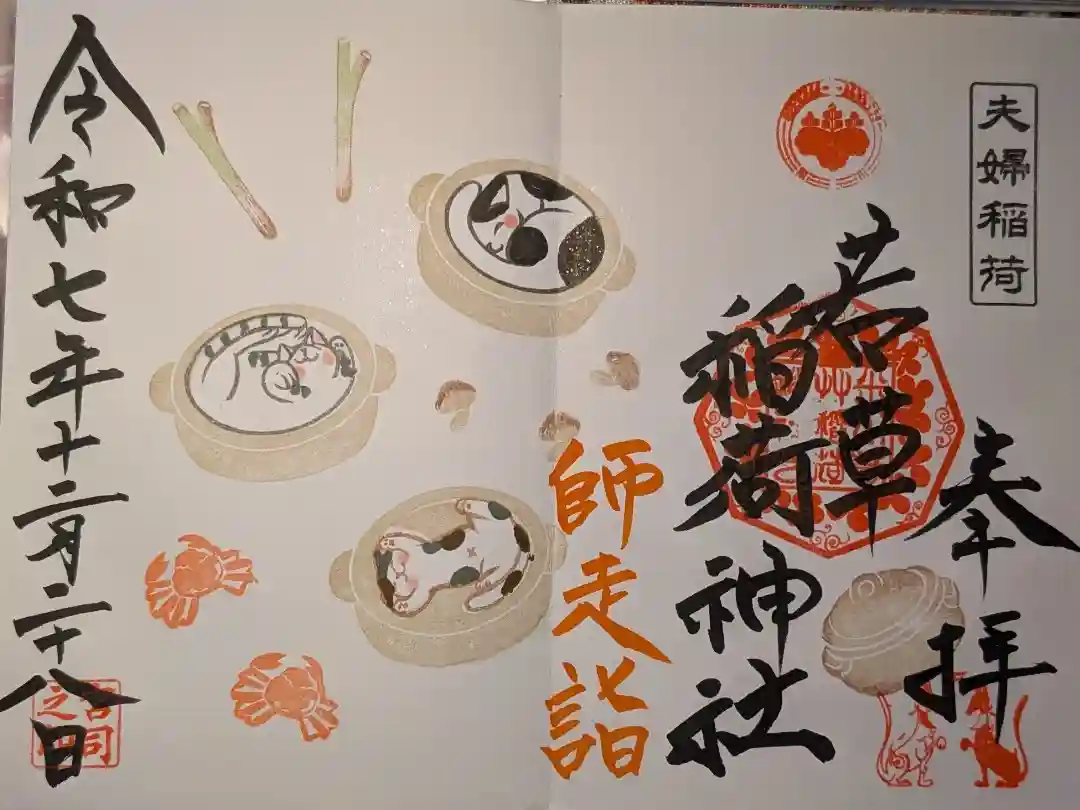 夫婦稲荷
奉拝
若草
稲荷
神社
師走詣
令和七年十二月二十八日